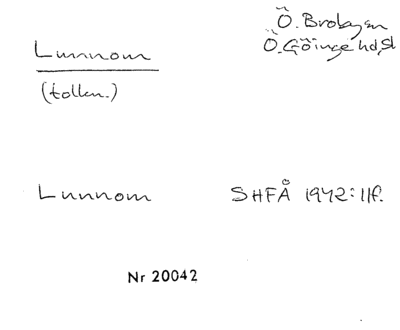 Ö. Broby sn
Ö. Göinge hd, Sk
Lunnom
(tolkn.)
Lunnom SHFÅ 1942: 11f.
Nr 20042